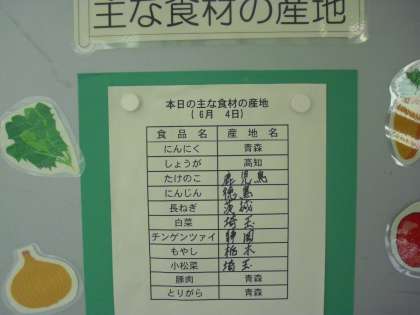 主な食材の産地
本日の主な食材の産地
(6月 4日)
食品名 産地名
にんにく 青森
しょうが 高知
たけのこ 鹿児島
にんじん 徳島
長ねぎ 茨城
白菜 埼玉
チンゲンツァイ 静岡
もやし 栃木
小松菜 埼玉
豚肉 青森
とりがら 青森